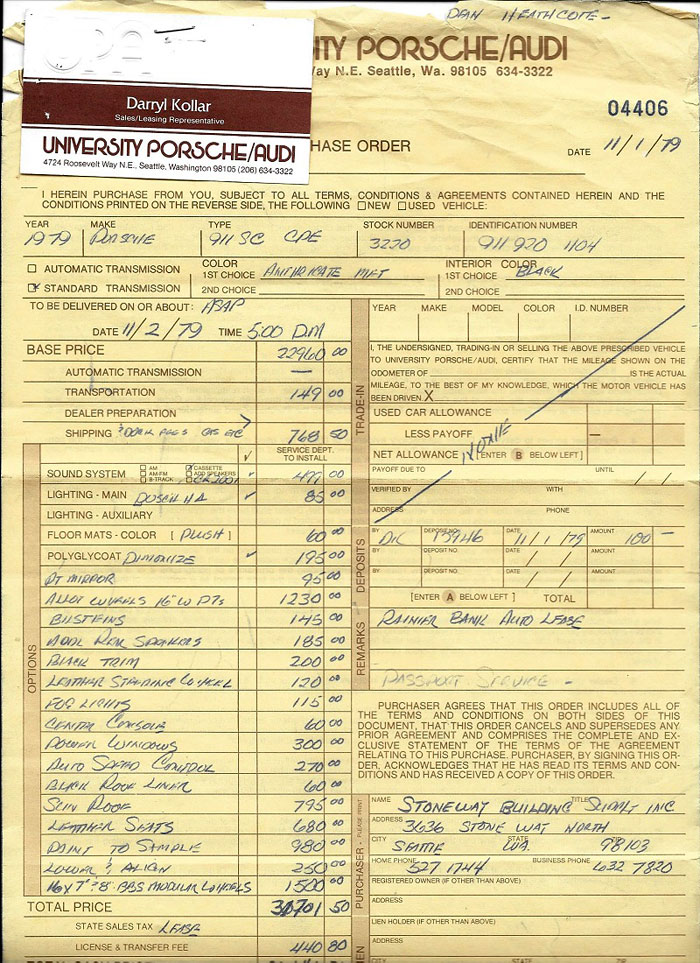 DEAN HEATHCOTE -
UNIVERSITY PORSCHE/AUDI
Way N.E. Seattle, Wa. 98105 634-3322
Darryl Kollar
Sales/Leasing Representative
UNIVERSITY PORSCHE/AUDI
4724 Roosevelt Way N.E., Seattle, Washington 98105 (206) 634-3322
04406
HASE ORDER
DATE 11/1/79
I HEREIN PURCHASE FROM YOU, SUBJECT TO ALL TERMS, CONDITIONS & AGREEMENTS CONTAINED HEREIN AND THE
CONDITIONS PRINTED ON THE REVERSE SIDE, THE FOLLOWING NEW USED VEHICLE:
YEAR MAKE TYPE STOCK NUMBER IDENTIFICATION NUMBER
1979 PORSCHE 911 SC CPE 3220 911 920 1104
AUTOMATIC TRANSMISSION COLOR 1ST CHOICE ANTHRICATE MET INTERIOR COLOR 1ST CHOICE BLACK
STANDARD TRANSMISSION 2ND CHOICE 2ND CHOICE
TO BE DELIVERED ON OR ABOUT: ASAP
DATE 11/2/79 TIME 5:00 P.M
BASE PRICE 22960 00
AUTOMATIC TRANSMISSION —
TRANSPORTATION 149 00
DEALER PREPARATION
SHIPPING & DOCK FEES GAS ETC 768 50
SERVICE DEPT. TO INSTALL
SOUND SYSTEM AM AM-FM 8-TRACK CASSETTE ADD SPEAKERS 499 00
LIGHTING - MAIN BOSCH H4 85 00
LIGHTING - AUXILIARY
FLOOR MATS - COLOR [PLUSH] 60 00
POLYGLYCOAT DIMONIZE 195 00
RT MIRROR 95 00
ALLOY WHEELS 16" W P7s 1230 00
BILSTEINS 145 00
ADDL REAR SPEAKERS 185 00
BLACK TRIM 200 00
LEATHER STEERING WHEEL 120 00
FOG LIGHTS 115 00
CENTER CONSOLE 60 00
POWER WINDOWS 300 00
AUTO SPEED CONTROL 270 00
BLACK ROOF LINER 60 00
SUN ROOF 795 00
LEATHER SEATS 680 00
PAINT TO SAMPLE 980 00
LOWER & ALIGN 250 00
16 x 7" & 8" BBS MODULAR WHEELS 1500 00
OPTIONS
TOTAL PRICE 50
STATE SALES TAX LEASE
LICENSE & TRANSFER FEE 440 80
TRADE-IN
YEAR MAKE MODEL COLOR I.D. NUMBER
I, THE UNDERSIGNED, TRADING-IN OR SELLING THE ABOVE PRESCRIBED VEHICLE
TO UNIVERSITY PORSCHE/AUDI, CERTIFY THAT THE MILEAGE SHOWN ON THE
ODOMETER OF IS THE ACTUAL
MILEAGE, TO THE BEST OF MY KNOWLEDGE, WHICH THE MOTOR VEHICLE HAS
BEEN DRIVEN. X
USED CAR ALLOWANCE
LESS PAYOFF —
NET ALLOWANCE [ENTER B BELOW LEFT]
NONE
PAYOFF DUE TO UNTIL / /
VERIFIED BY WITH
ADDRESS PHONE
DEPOSITS
BY DK DEPOSIT NO. 13946 DATE 11/1/79 AMOUNT 100 —
BY DEPOSIT NO. DATE / / AMOUNT
BY DEPOSIT NO. DATE / / AMOUNT
[ENTER A BELOW LEFT] TOTAL
REMARKS
RAINIER BANK AUTO LEASE
PASSPORT SERVICE -
PURCHASER AGREES THAT THIS ORDER INCLUDES ALL OF
THE TERMS AND CONDITIONS ON BOTH SIDES OF THIS
DOCUMENT, THAT THIS ORDER CANCELS AND SUPERSEDES ANY
PRIOR AGREEMENT AND COMPRISES THE COMPLETE AND EX-
CLUSIVE STATEMENT OF THE TERMS OF THE AGREEMENT
RELATING TO THIS PURCHASE. PURCHASER, BY SIGNING THIS OR-
DER, ACKNOWLEDGES THAT HE HAS READ ITS TERMS AND CON-
DITIONS AND HAS RECEIVED A COPY OF THIS ORDER.
PURCHASER - PLEASE PRINT
NAME STONEWAY BUILDING TITLE SUPPLY INC
ADDRESS 3636 STONE WAY NORTH
CITY SEATTLE STATE WA. ZIP 98103
HOME PHONE 527 1744 BUSINESS PHONE 632 7820
REGISTERED OWNER (IF OTHER THAN ABOVE)
ADDRESS
LIEN HOLDER (IF OTHER THAN ABOVE)
ADDRESS
CITY STATE ZIP